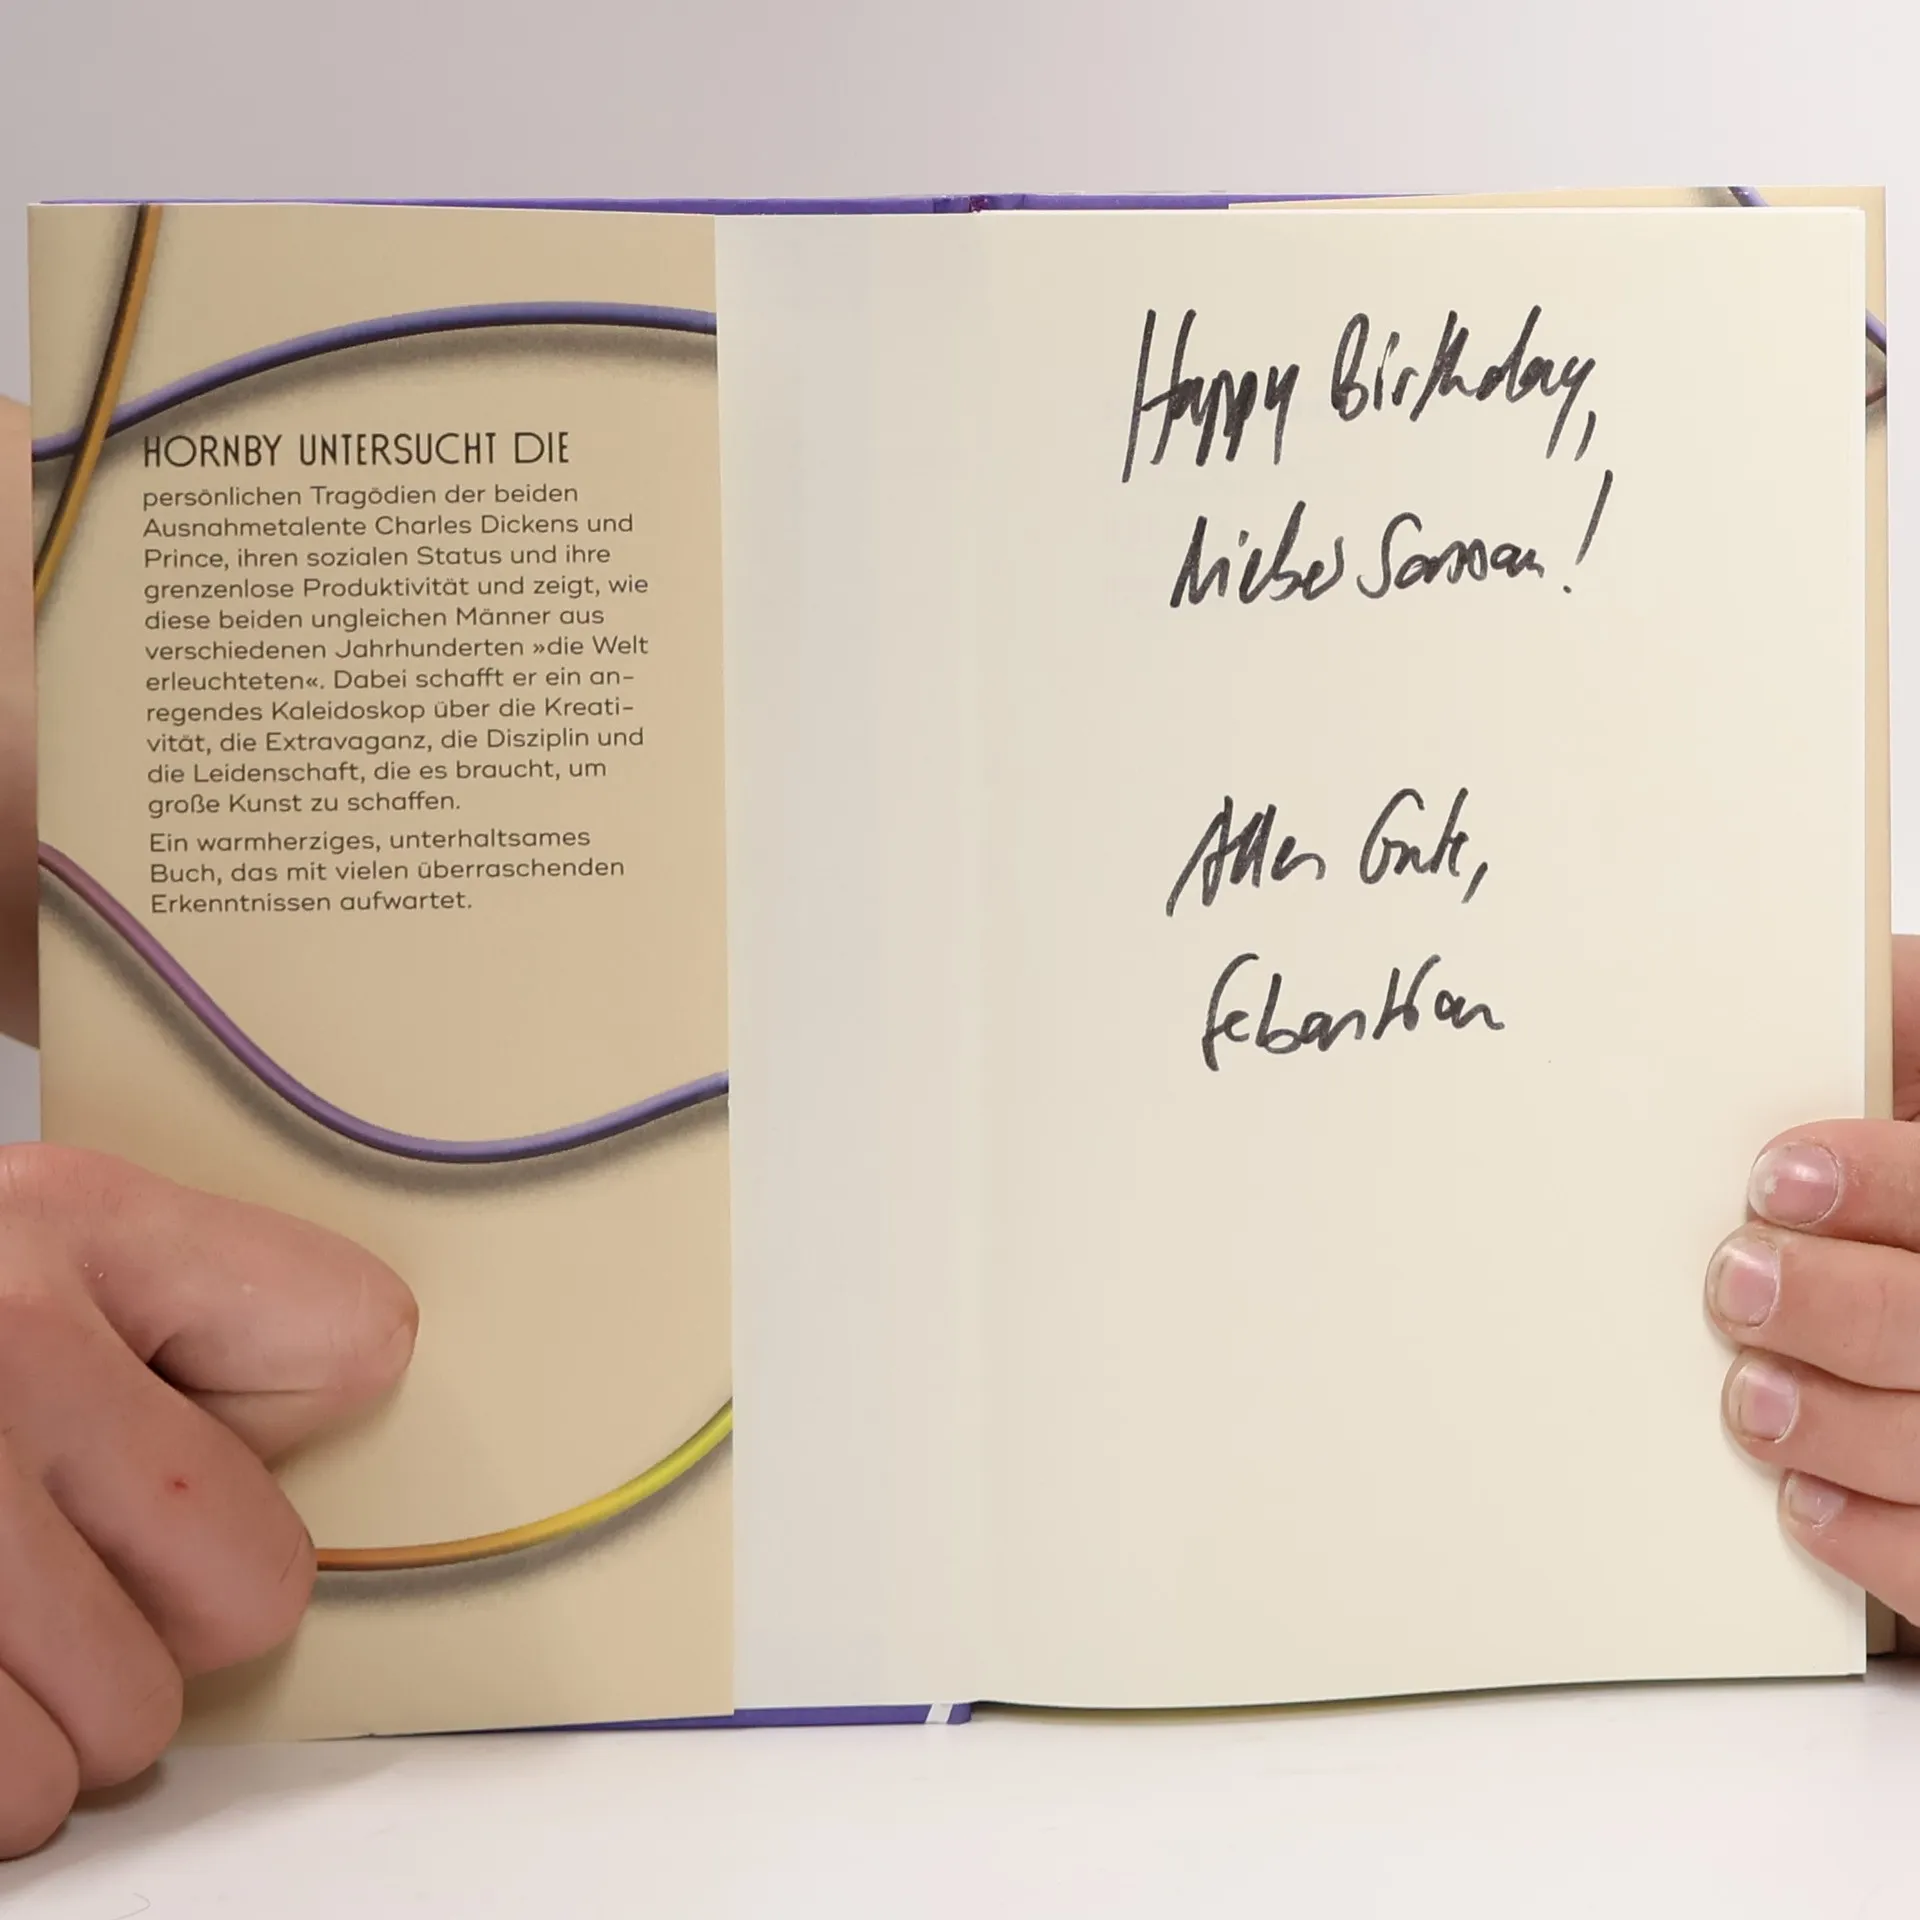 HORNBY UNTERSUCHT DIE
persönlichen Tragödien der beiden
Ausnahmetalente Charles Dickens und
Prince, ihren sozialen Status und ihre
grenzenlose Produktivität und zeigt, wie
diese beiden ungleichen Männer aus
verschiedenen Jahrhunderten »die Welt
erleuchteten«. Dabei schafft er ein an-
regendes Kaleidoskop über die Kreati-
vität, die Extravaganz, die Disziplin und
die Leidenschaft, die es braucht, um
große Kunst zu schaffen.
Ein warmherziges, unterhaltsames
Buch, das mit vielen überraschenden
Erkenntnissen aufwartet.
Happy Birthday,
lieber Sassan!
Alles Gute,
Sebastian